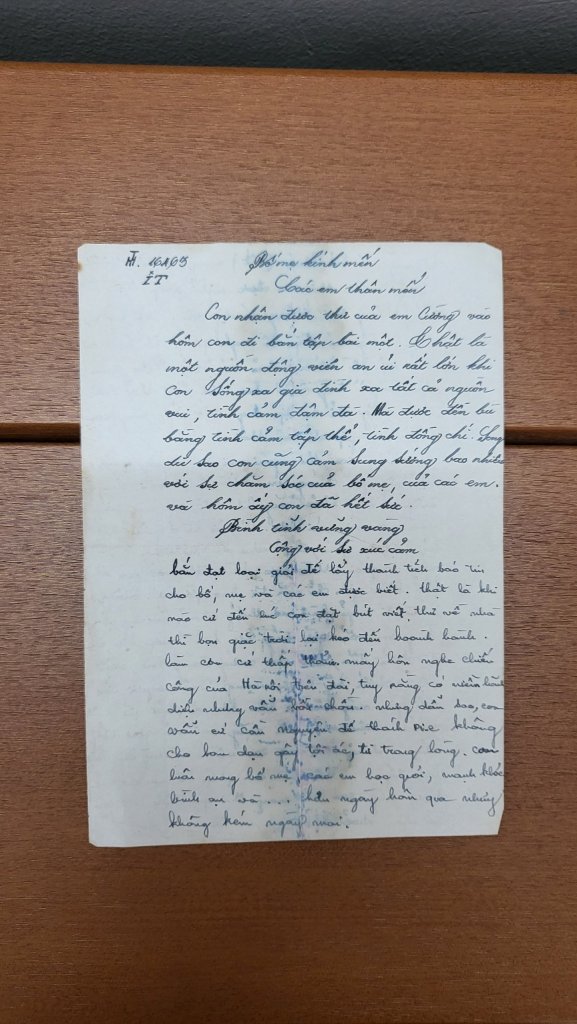 Bố mẹ kính mến
Các em thân mến
Con nhận được thư của em Cường vào
hôm con đi bắn tập bài một. Thật là
một nguồn động viên an ủi rất lớn khi
con sống xa gia đình xa tất cả nguồn
vui, tình cảm đậm đà. Mà được đền bù
bằng tình cảm tập thể, tình đồng chí. Song
dù sao con cũng cảm sung sướng bao nhiêu
với sự chăm sóc của bố mẹ, của các em.
và hôm ấy con đã hết sức.
Bình tĩnh vững vàng
Cộng với sự xúc cảm
bắn đạt loại giỏi để lấy thành tích báo tin
cho bố, mẹ và các em được biết. thật là khi
nào cứ đến lúc con đặt bút viết thư về nhà
thì bọn giặc trời lại kéo đến hoành hành.
làm con cứ thấp thỏm mấy hôm nghe chiến
công của Hà nội trên đài, tuy rằng có
diệu nhưng vẫn chồn. nhưng dẫu sao, con
vẫn cứ cầu nguyện để thành không
cho bọn chúng gây tội ác, từ trong lòng. con
luôn mong bố mẹ các em học giỏi, mạnh khỏe
bình an và .... ngày hôm qua nhưng
không kém ngày mai.